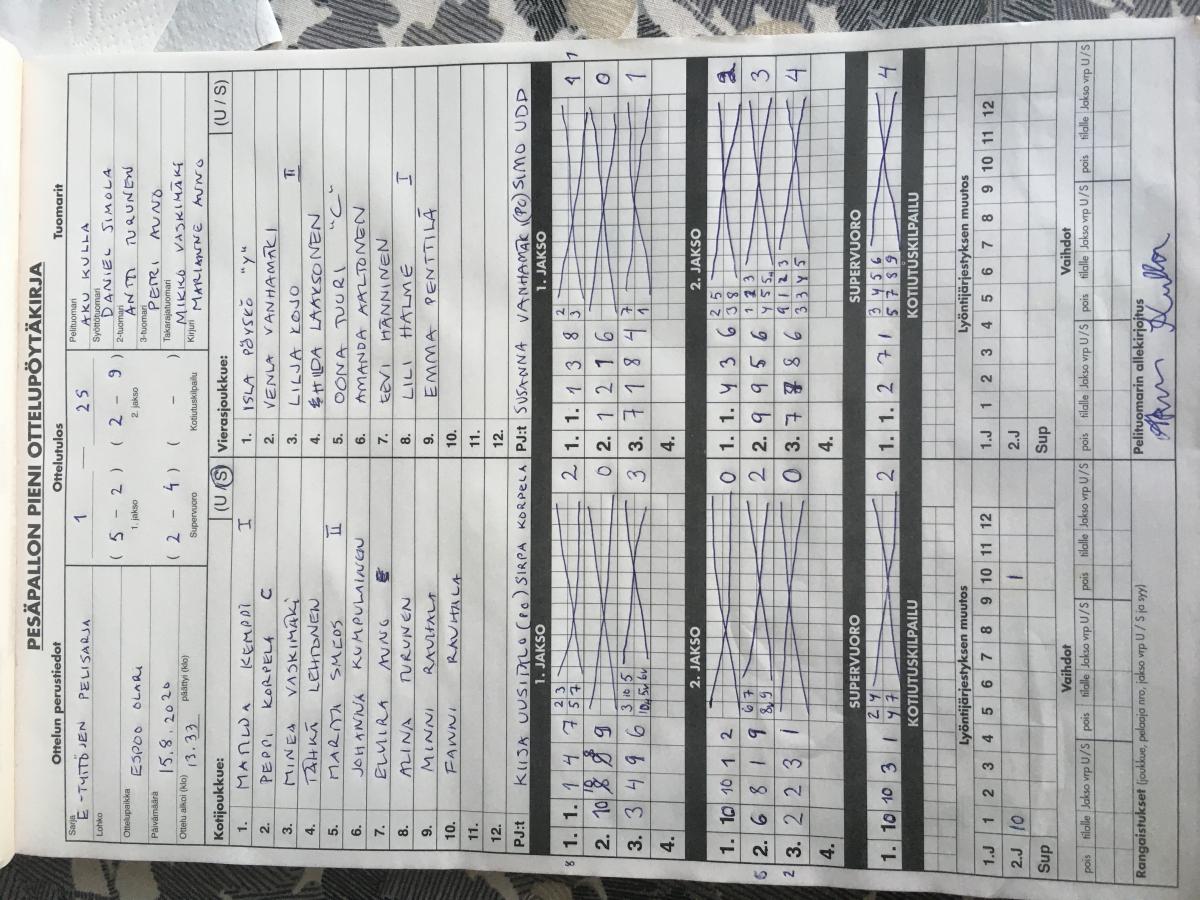 PESÄPALLON PIENI OTTELUPÖYTÄKIRJA
Ottelun perustiedot
Sarja
E-TYTTÖJEN PELISARJA
Lohko
Ottelupaikka
ESPOO OLARI
Päivämäärä
15.8.2020
Ottelu alkoi (klo) 13.33 päättyi (klo)
Ottelutulos
1 — 25
( 5 - 2 ) ( 2 - 9 )
1. jakso 2. jakso
( 2 - 4 ) ( - )
Supervuoro Kotiutuskilpailu
Tuomarit
Pelituomari
AKU KULLA
Syöttötuomari
DANIEL SIMOLA
2-tuomari
ANTTI TURUNEN
3-tuomari
PETRI AUNO
Takarajatuomari
MIKKO VASKIMÄKI
Kirjuri
MARIANNE AUNO
Kotijoukkue: (U/S)
1. MATILDA KEMPPI I
2. PEPPI KORPELA C
3. MINEA VASKIMÄKI
4. TÄHKÄ LEHTONEN
5. MARITA SMEDS II
6. JOHANNA KUMPULAINEN
7. ELVIIRA AUNO
8. ALINA TURUNEN
9. MINNI RAUHALA
10. FANNI RAUHALA
11.
12.
PJ:t KIIJA UUSITALO (PO) SIRPA KORPELA
Vierasjoukkue: (U / S)
1. ISLA PÖYSKÖ "Y"
2. VENLA VANHAMÄKI
3. LILJA KOJO II
4. HILDA LAAKSONEN
5. OONA TUURI "C"
6. AMANDA AALTONEN
7. EEVI HÄNNINEN
8. LILI HALME I
9. EMMA PENTTILÄ
10.
11.
12.
PJ:t SUSANNA VANHAMÄKI (PO) SIMO UDD
1. JAKSO
8 1. 1. 1 4 7 2 3 5 7 2
2. 10 9 0
3. 3 4 9 6 3
4.
2. JAKSO
1. 10 10 1 2 0
5 2. 6 8 1 9 6 7 8 9 2
2 3. 2 2 3 1 0
4.
SUPERVUORO
1. 10 10 3 1 2 4 4 7 2
KOTIUTUSKILPAILU
1. JAKSO
1. 1. 1 3 8 2 3 1
2. 1 2 1 6 0
3. 7 1 8 4 7 1 1
4.
2. JAKSO
1. 1. 4 3 6 2 5 3 8 2
2. 9 9 5 6 3
3. 7 8 6 9 1 2 3 3 3 4 5 4
4.
SUPERVUORO
1. 1. 2 7 1 3 4 5 6 5 7 8 9 4
KOTIUTUSKILPAILU
Lyöntijärjestyksen muutos
1.J 1 2 3 4 5 6 7 8 9 10 11 12
2.J 10 1
Sup
Vaihdot
pois tilalle Jakso vrp U / S pois tilalle Jakso vrp U / S pois tilalle Jakso vrp U / S
Lyöntijärjestyksen muutos
1.J 1 2 3 4 5 6 7 8 9 10 11 12
2.J
Sup
Vaihdot
pois tilalle Jakso vrp U / S pois tilalle Jakso vrp U / S pois tilalle Jakso vrp U / S
Rangaistukset (joukkue, pelaaja nro, jakso vrp U / S ja syy)
Pelituomarin allekirjoitus